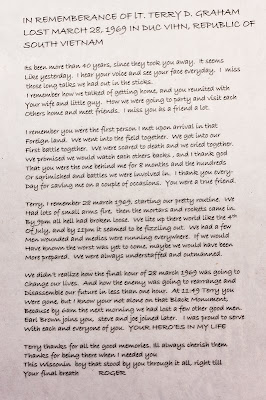 IN REMEMBERANCE OF LT. TERRY D. GRAHAM
LOST MARCH 28, 1969 IN DUC VIHN, REPUBLIC OF
SOUTH VIETNAM
Its been more than 40 years, since they took you away. It seems
Like yesterday. I hear your voice and see your face everyday. I miss
those long talks we had out in the sticks.
I remember how we talked of getting home, and you reunited with
Your wife and little guy. How we were going to party and visit each
Others home and meet friends. I miss you as a friend a lot.
I remember you were the first person I met upon arrival in that
Foreign land. We went into the field together. We got into our
First battle together. We were scared to death and we cried together.
We promised we would watch each others backs, and I thank god
That you were the one behind me for 8 months and the hundreds
Or sgrimished and battles we were involved in. I thank you every-
Day for saving me on a couple of occasions. You were a true friend.
Terry, I remember 28 march 1969, starting our pretty routine. We
Had lots of small arms fire, then the mortars and rockets came in.
By 9am all hell had broken loose. We lite up there world like the 4th
Of July, and by 11pm it seemed to be fizzling out. We had a few
Men wounded and medics were running everywhere. If we would
Have known the worst was yet to come, maybe we would have been
More prepared. We were always understaffed and outmanned.
We didn't realize how the final hour of 28 march 1969 was going to
Change our lives. And how the enemy was going to rearrange and
Disassemble our future in less than one hour. At 11:49 Terry you
Were gone, but I know your not alone on that Black Monument,
Because by 6am the next morning we had lost a few other good men.
Earl Brown joins you. steve and joe joined later. I was proud to serve
With each and everyone of you. YOUR HERO'ES IN MY LIFE
Terry thanks for all the good memories. Ill always cherish them
Thanks for being there when I needed you
This Wisconin boy that stood by you through it all, right till
Your final breath ROGER